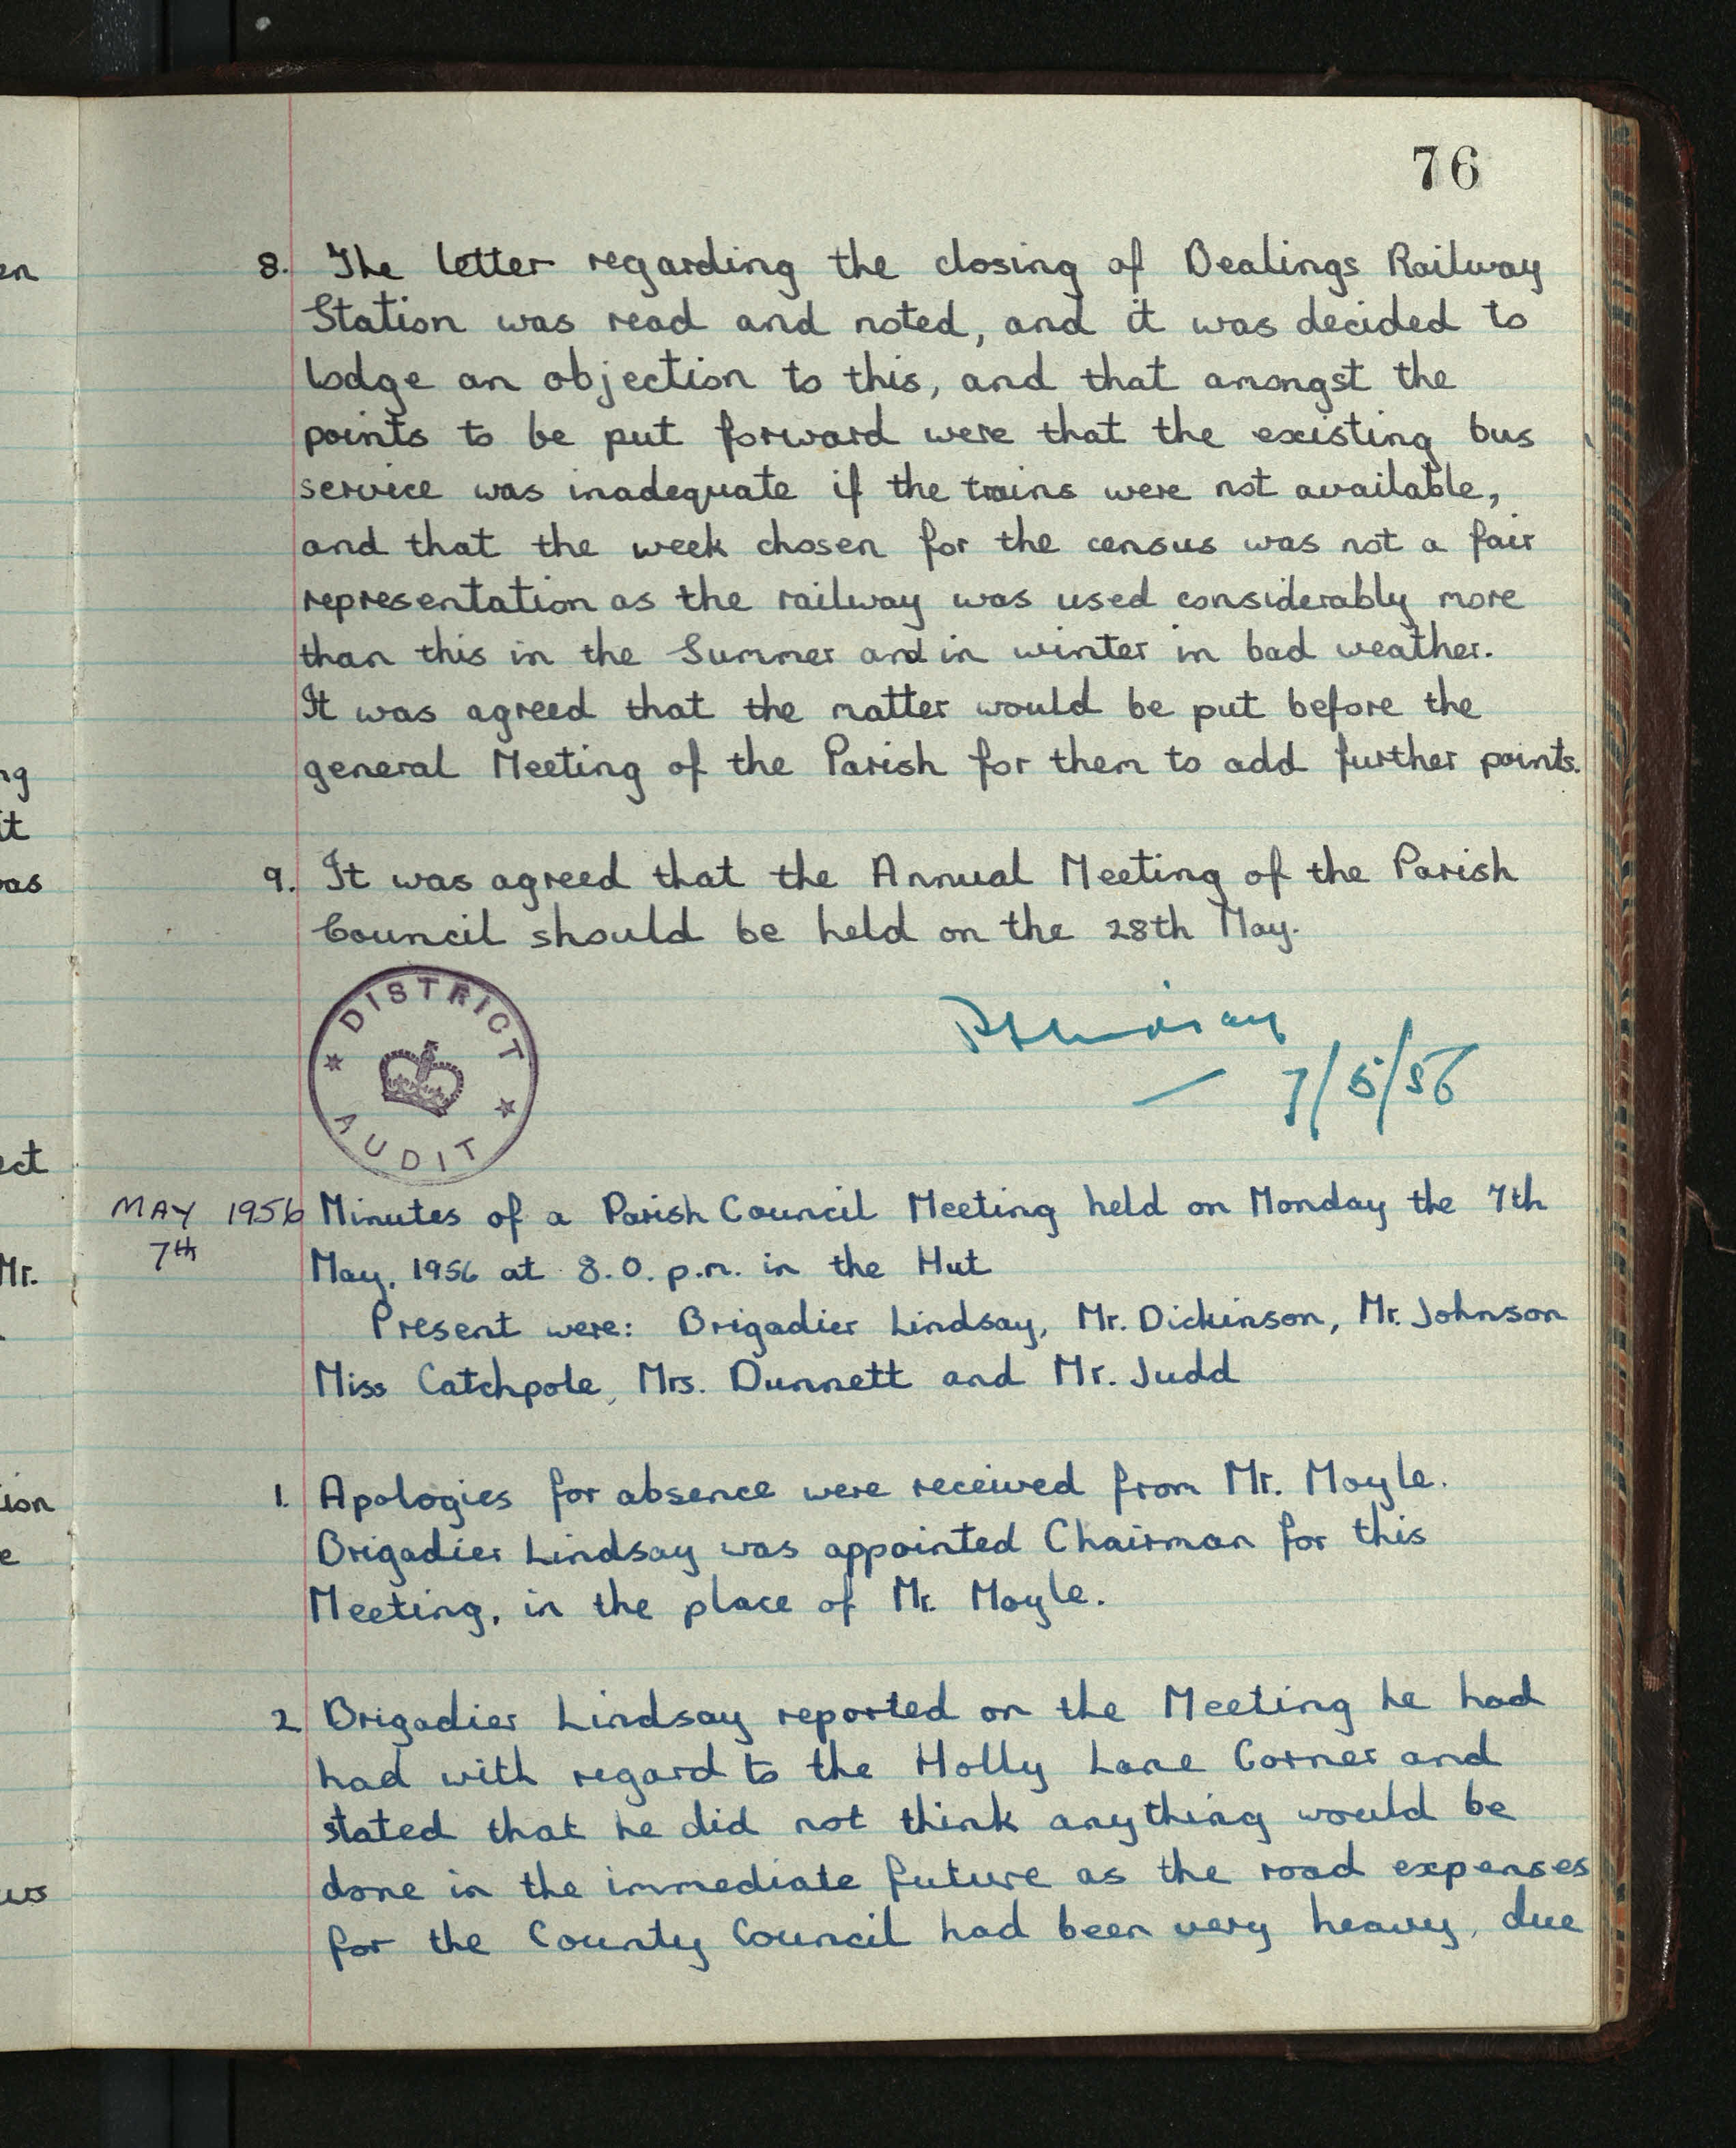 76
8. The letter regarding the closing of Bealings Railway
Station was read and noted, and it was decided to
lodge an objection to this, and that amongst the
points to be put forward were that the existing bus
service was inadequate if the trains were not available,
and that the week chosen for the census was not a fair
representation as the railway was used considerably more
than this in the Summer and in winter in bad weather.
It was agreed that the matter would be put before the
general Meeting of the Parish for them to add further points.
9. It was agreed that the Annual Meeting of the Parish
Council should be held on the 28th May.
DISTRICT
AUDIT
7/5/56
MAY 1956
7th
Minutes of a Parish Council Meeting held on Monday the 7th
May, 1956 at 8.0. p.m. in the Hut
Present were: Brigadier Lindsay, Mr. Dickinson, Mr. Johnson
Miss Catchpole, Mrs. Dunnett and Mr. Judd
1. Apologies for absence were received from Mr. Moyle.
Brigadier Lindsay was appointed Chairman for this
Meeting, in the place of Mr. Moyle.
2 Brigadier Lindsay reported on the Meeting he had
had with regard to the Holly Lane Corner and
stated that he did not think anything would be
done in the immediate future as the road expenses
for the County Council had been very heavy, due
en
ng
it
as
ect
Mr.
ion
e
ws